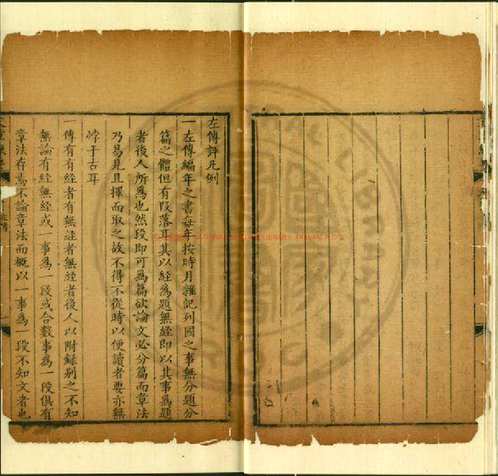 左傳評凡例
一左傳編年之書每年按時月雜記列國之事無分題分
篇之體但有段落耳其以經為題無經即以其事為題
者後人所為也然段即可為篇欲論文必分篇而章法
乃易見且擇而取之故不得不從時以便讀者要亦無
悖于古耳
一傳有有經者有無經者無經者後人以附録别之不知
無論有經無經或一事為一段或合數事為一段俱有
章法存焉不論章法而概以一事為一段不知文者也